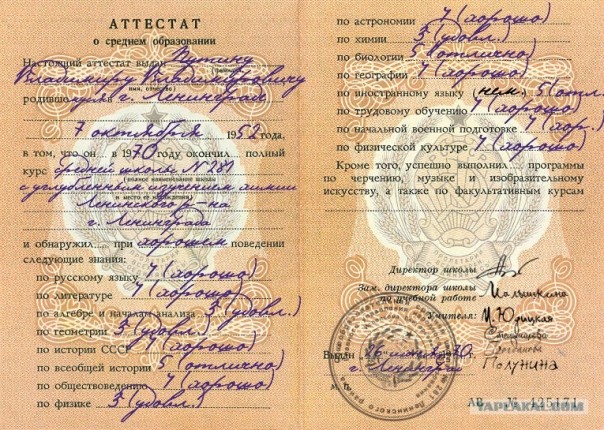 АТТЕСТАТ
о среднем образовании
Настоящий аттестат выдан Путину
Владимиру Владимировичу
имя, отчество)
родившемуся г. Ленинград
7 октября 1952 года,
в том, что он в 1970 году окончил полный
курс средней школы № 281
(полное наименование школы
с углубленным изучением химии
и место ее нахождения)
Ленинского р-на
г. Ленинграда
и обнаружил при хорошем поведении
следующие знания:
по русскому языку 4 (хорошо)
по литературе 4 (хорошо)
по алгебре и началам анализа 3 (удовл.)
по геометрии 3 (удовл.)
по истории СССР 4 (хорошо)
по всеобщей истории 5 (отлично)
по обществоведению 4 (хорошо)
по физике 3 (удовл.)
по астрономии 4 (хорошо)
по химии 3 (удовл.)
по биологии 5 (отлично)
по географии 4 (хорошо)
по иностранному языку (нем.) 5 (отл.)
по трудовому обучению 4 (хорошо)
по начальной военной подготовке 4 (хор.)
по физической культуре 4 (хорошо)
Кроме того, успешно выполнил программы
по черчению, музыке и изобразительному
искусству, а также по факультативным курсам
Директор школы
Зам. директора школы
по учебной работе
Учителя:
Полунина
Выдан „26 июня 1970 г.
г. Ленинград
М. П.
АВ № 125171
YAPLAKAL.COM